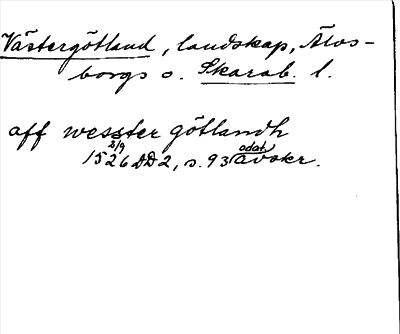 Västergötland, landskap, Älvs-
borgs o. Skarab. l.
aff wesster götlandh
1526 3/9 DD2, s. 93 odat. avskr.